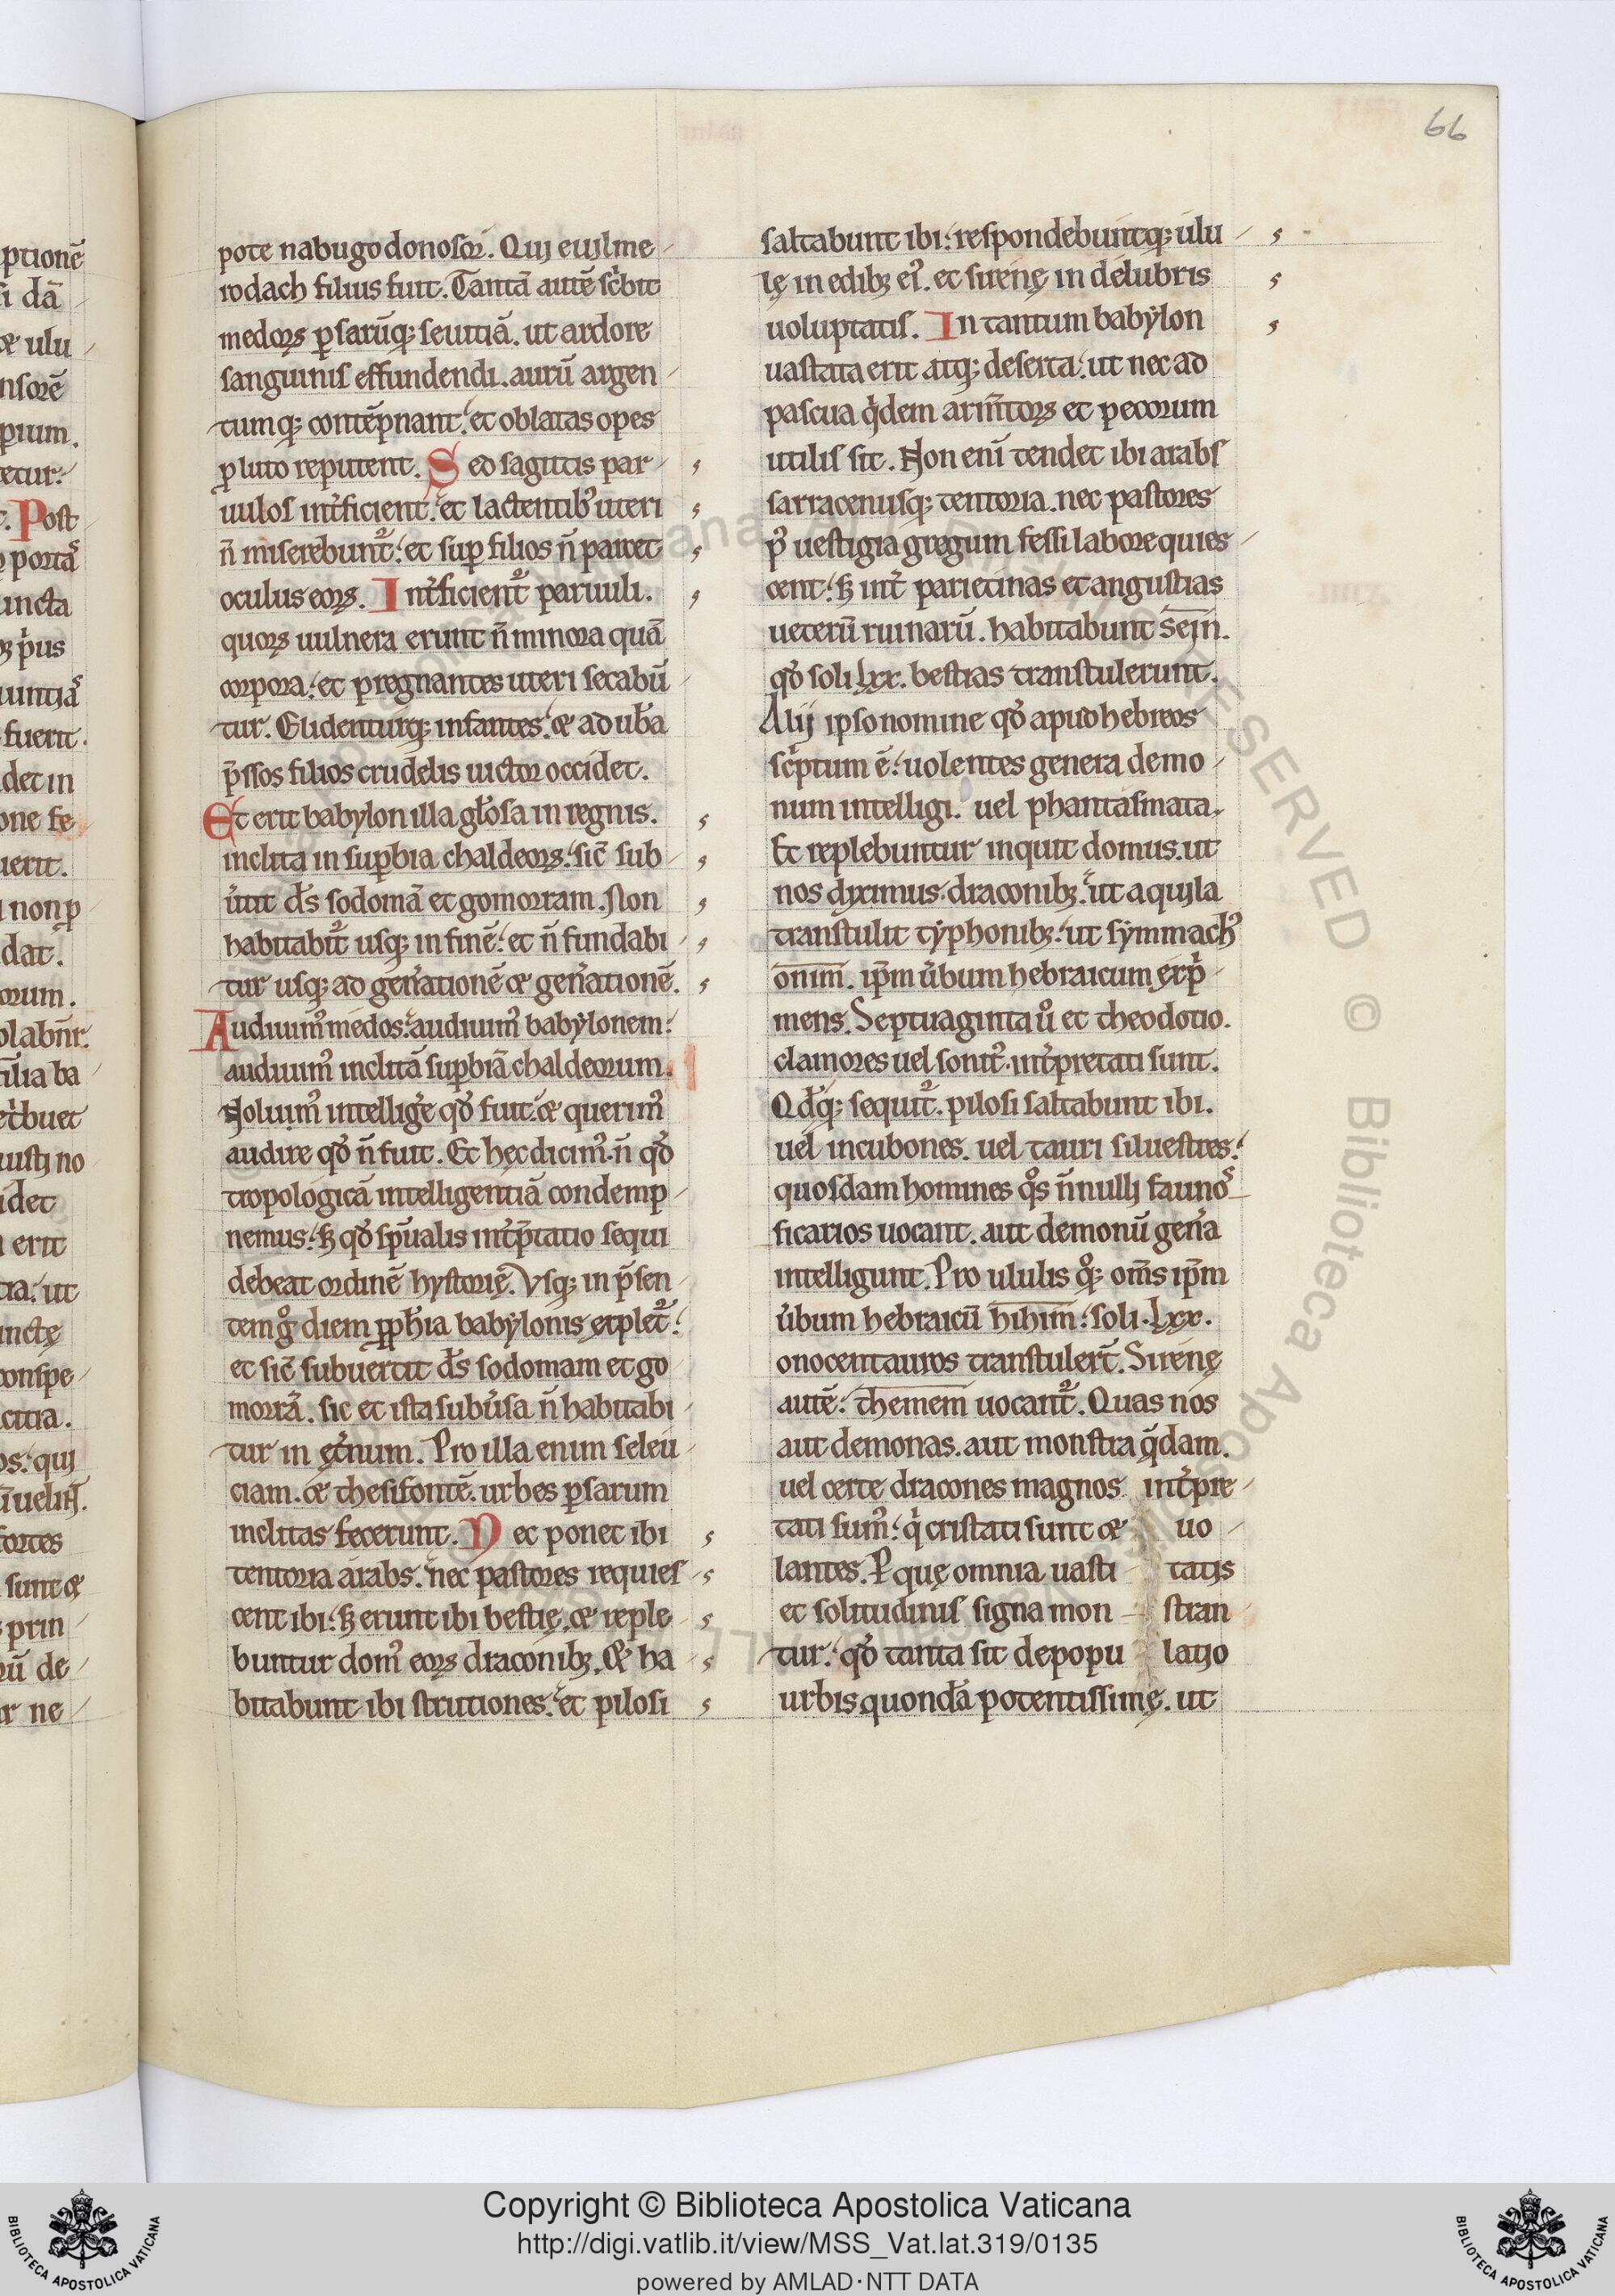 66
pote nabugodonosor. Qui euilme
rodach filius fuit. Tantā autē sc̓bit
medoꝝ ꝑsarūq; seuitiā. ut ardore
sanguinis effundendi. aurū argen
tumq; contēpnant. et oblatas opes
ꝓ luto reputent. Sed sagittis par
uulos int̓ficient. et lactentib᷒ uteri
n̄ miserebunt᷑. et suꝑ filios n̄ parcet
oculus eoꝝ. Int̓ficient᷑ paruuli.
quoꝝ uulnera erunt n̄ minora quā
corpora. et pregnantes uteri secabū
tur. Elidenturq; infantes. & ad ub̓a
p̄ssos filios crudelis uictor occidet.
Et erit babylon illa gl̓osa in regnis.
inclita in suꝑbia chaldeoꝝ. sic̄ sub
u̓tit d̄s sodomā et gomorram. Non
habitabit᷑ usq; in finē. et n̄ fundabi
tur usq; ad gen̓ationē & gen̓ationē.
Audiuim᷒ medos. audiuim᷒ babylonem.
audiuim᷒ inclitā suꝑbiā chaldeorum.
Noluim᷒ intellig̓e qd̓ fuit. & querim᷒
audire qd̓ n̄ fuit. Et hęc dicim᷒. n̄ qd̓
tropologicā intelligentiā condemp
nemus. sꝫ qd̓ sp̄ualis int̓p̄tatio sequi
debeat ordinē hystorię. Vsq; in p̄sen
temg̊ diem ꝓph̓ia babylonis explet᷑.
et sic̄ subuertit d̄s sodomam et go
morrā. sic et ista subu̓sa n̄ habitabi
tur in ęt̓num. Pro illa enim seleu
ciam. & thesifontē. urbes ꝑsarum
inclitas fecerunt. Nec ponet ibi
tentoria arabs. nec pastores requies
cent ibi. sꝫ erunt ibi bestię. & reple
buntur dom᷒ eoꝝ draconibꝫ. & ha
bitabunt ibi strutiones. et pilosi
saltabunt ibi. respondebuntq; ulu
lę in edibꝫ ei᷒. et sirenę in delubris
uoluptatis. In tantum babylon
uastata erit atq; deserta. ut nec ad
pascua q̓dem arm̄toꝝ et pecorum
utilis sit. Non eni̅ tendet ibi arabs
sarracenusq; tentoria. nec pastores
p᷒ uestigia gregum fessi labore quies
cent. sꝫ int̓ parietinas et angustias
ueterū ruinarū. habitabunt sein.
qd̓ soli lxx. bestias transtulerunt.
Alij ipso nomine qd̓ apud hebreos
sc̓ptum ē. uolentes genera demo
num intelligi. uel phantasmata.
Et replebuntur inquit domus. ut
nos diximus. draconibꝫ. ut aquila
transtulit typhonibꝫ. ut symmach᷒
onim. ip̄m u̓bum hebraicum exp̓
mens. Septuaginta u̓ et theodotio.
clamores uel sonit᷒. int̓pretati sunt.
Qd̓q; sequit᷑. pilosi saltabunt ibi.
uel incubones. uel tauri siluestres.
quosdam homines q̊s n̄nulli fauno᷒
ficarios uocant. aut demonū gen̓a
intelligunt. Pro ululis q̊q; om̄s ip̄m
u̓bum hebraicū hihim. soli. Lxx.
onocentauros transtuler̄t. Sirenę
autē. themem uocant᷑. Quas nos
aut demonas. aut monstra q̄dam.
uel certe dracones magnos int̓pre
tati sum᷒. q̓ cristati sunt & uo
lantes. P quę omnia uasti tatis
et solitudinis signa mon stran
tur. qd̓ tanta sit depopu latio
urbis quondā potentissimę. ut
Copyright © Biblioteca Apostolica Vaticana
http://digi.vatlib.it/view/MSS_Vat.lat.319/0135
powered by AMLAD·NTT DATA
BIBLIOTECA APOSTOLICA VATICANA
BIBLIOTECA APOSTOLICA VATICANA